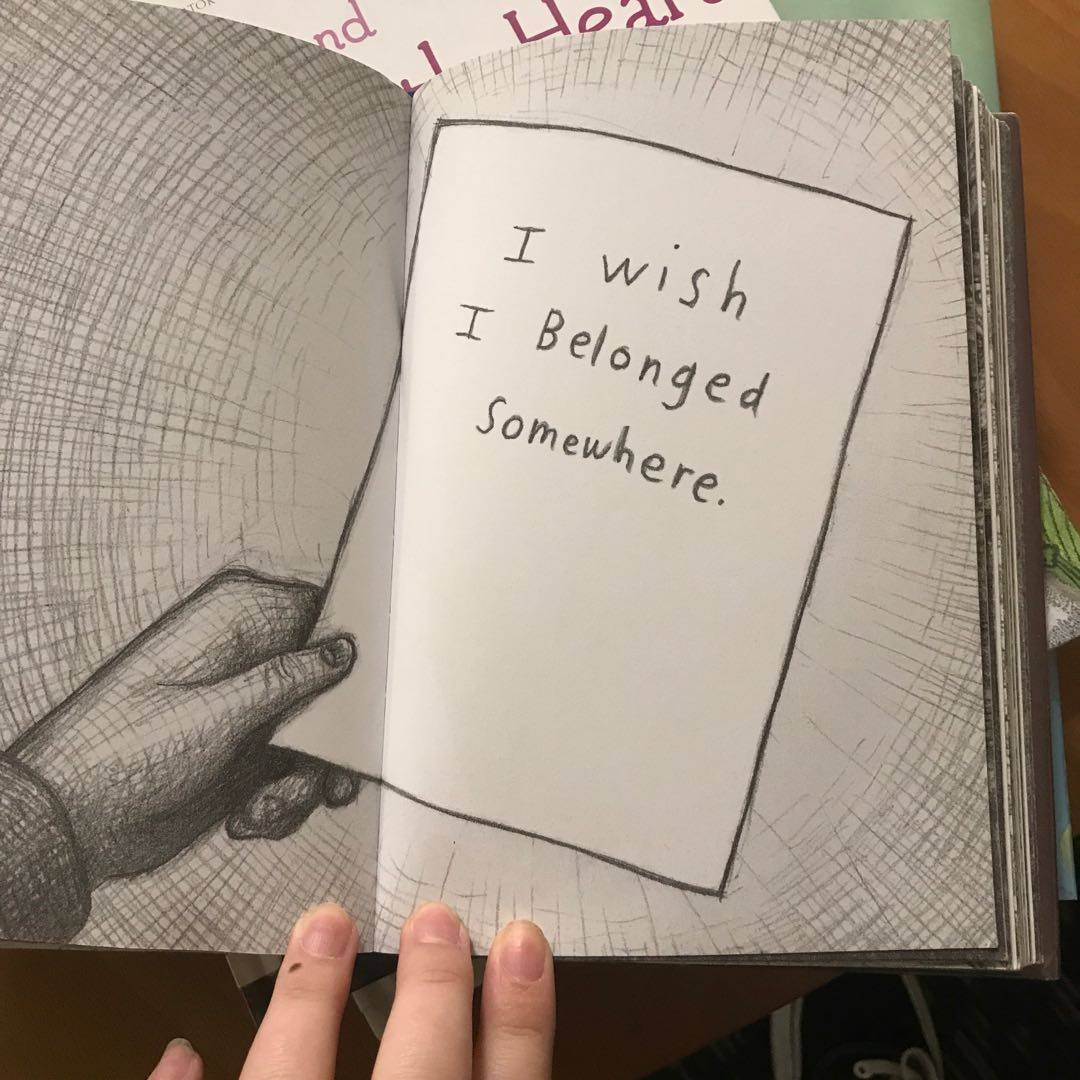 TOR
nd
Hear
I wish
I Belonged
Somewhere.